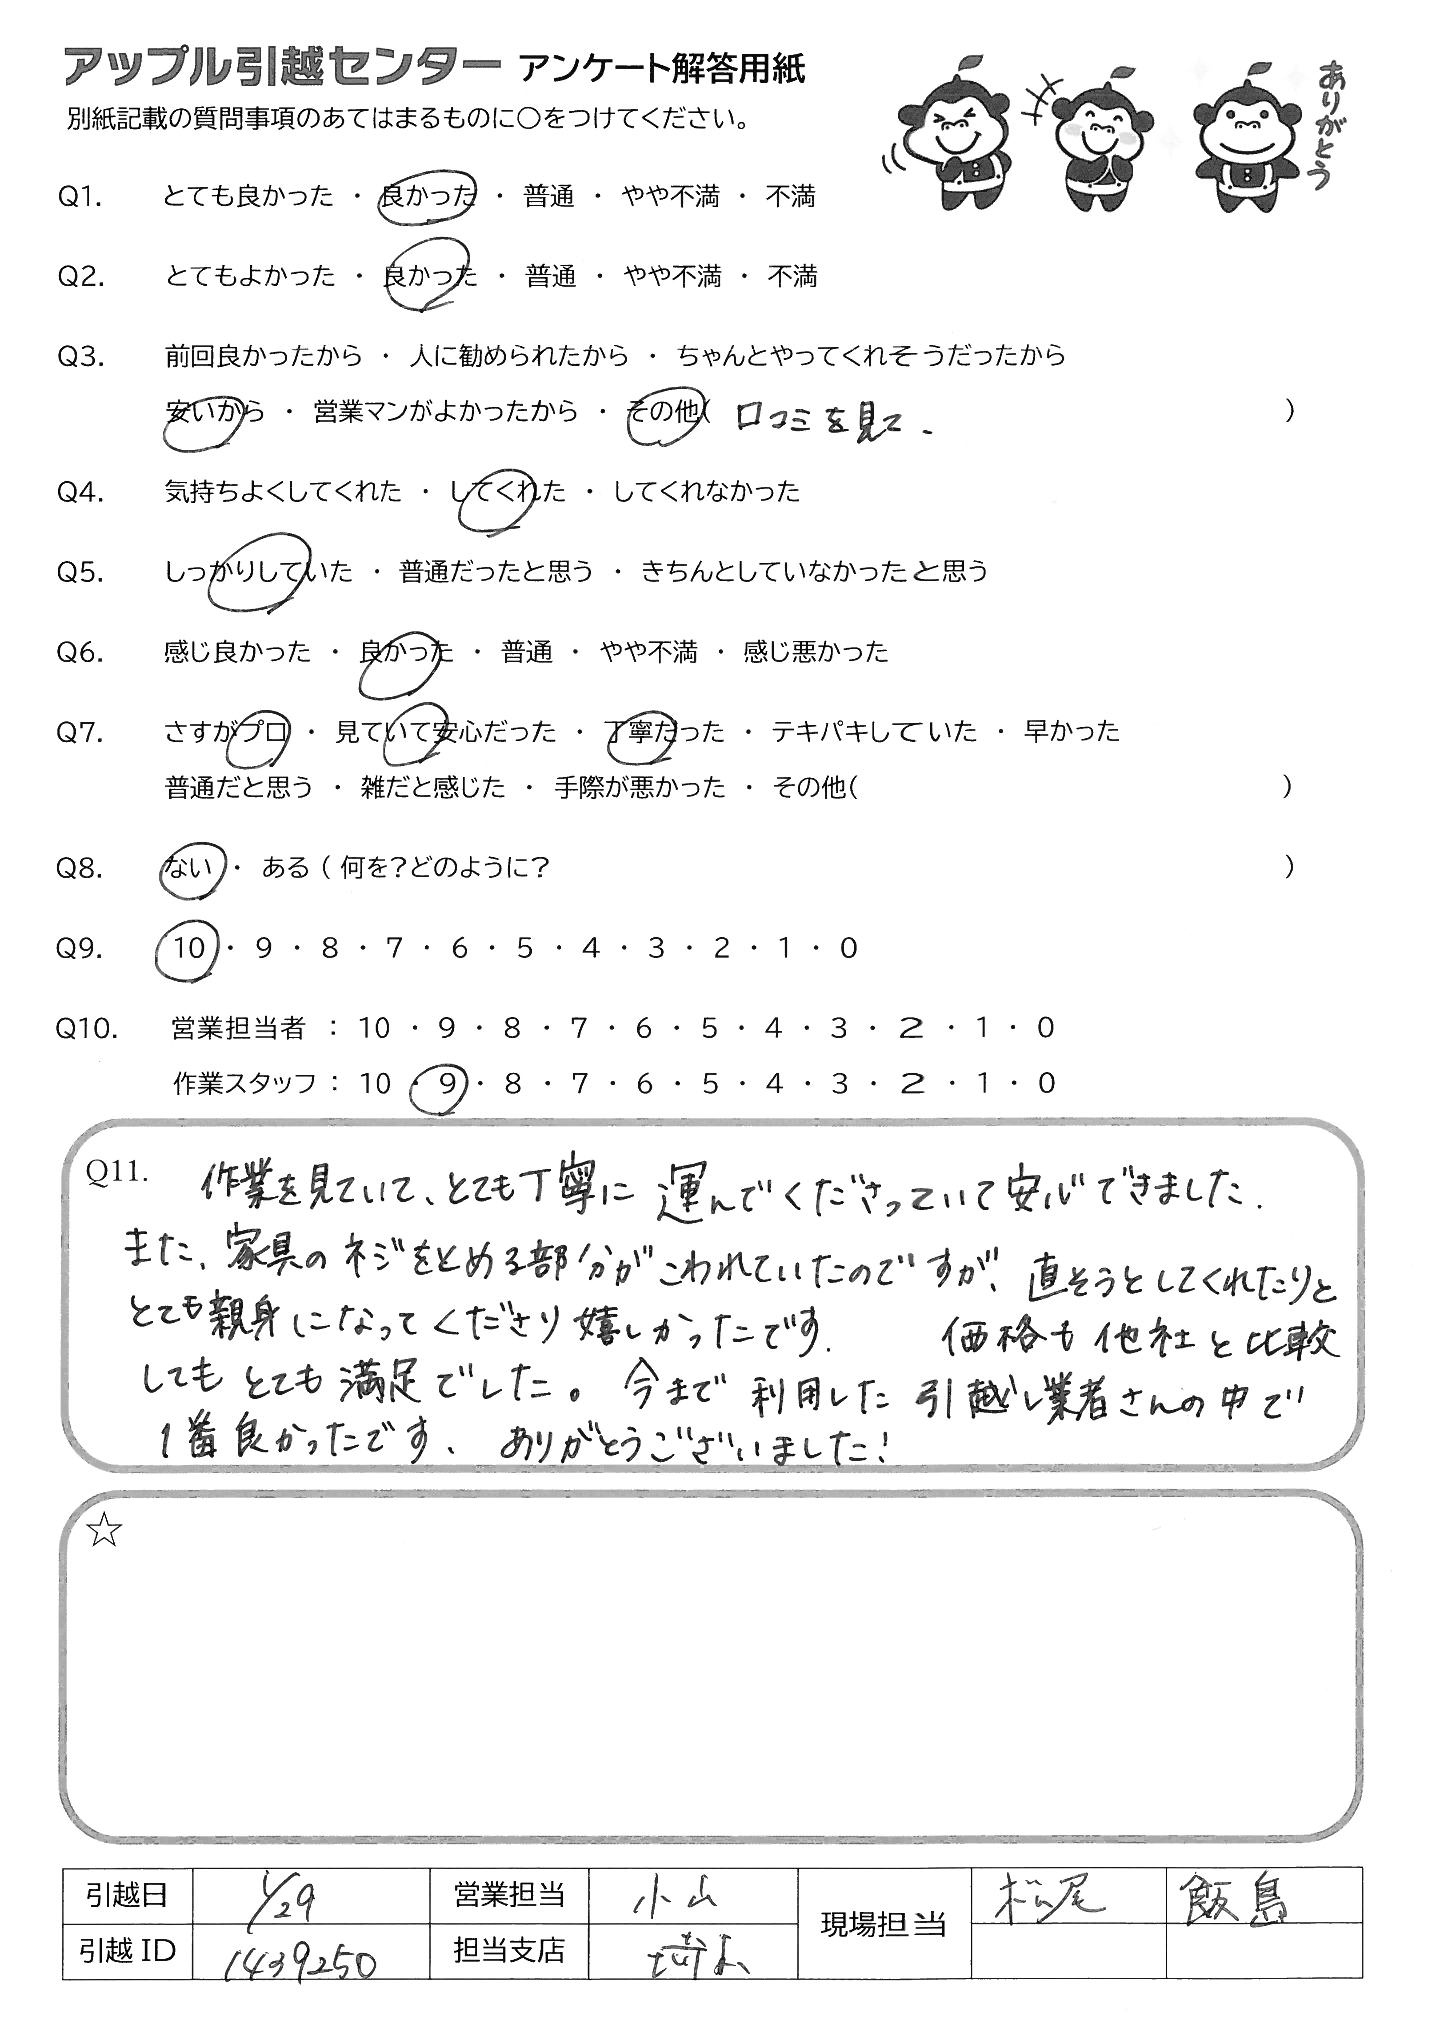 アップル引越センター アンケート解答用紙
ありがとう
別紙記載の質問事項のあてはまるものに〇をつけてください。
Q1. とても良かった ・ 良かった ・ 普通 ・ やや不満 ・ 不満
Q2. とてもよかった ・ 良かった ・ 普通 ・ やや不満 ・ 不満
Q3. 前回良かったから ・ 人に勧められたから ・ ちゃんとやってくれそうだったから
安いから ・ 営業マンがよかったから ・ その他( 口コミを見て. )
Q4. 気持ちよくしてくれた ・ してくれた ・ してくれなかった
Q5. しっかりしていた ・ 普通だったと思う ・ きちんとしていなかったと思う
Q6. 感じ良かった ・ 良かった ・ 普通 ・ やや不満 ・ 感じ悪かった
Q7. さすがプロ ・ 見ていて安心だった ・ 丁寧だった ・ テキパキしていた ・ 早かった
普通だと思う ・ 雑だと感じた ・ 手際が悪かった ・ その他( )
Q8. ない ・ ある ( 何を?どのように? )
Q9. 10 ・ 9 ・ 8 ・ 7 ・ 6 ・ 5 ・ 4 ・ 3 ・ 2 ・ 1 ・ 0
Q10. 営業担当者 : 10 ・ 9 ・ 8 ・ 7 ・ 6 ・ 5 ・ 4 ・ 3 ・ 2 ・ 1 ・ 0
作業スタッフ : 10 ・ 9 ・ 8 ・ 7 ・ 6 ・ 5 ・ 4 ・ 3 ・ 2 ・ 1 ・ 0
Q11. 作業を見ていて、とても丁寧に運んでくださっていて安心できました.
また、家具のネジをとめる部分がこわれていたのですが、直そうとしてくれたりと
とても親身になってくださり嬉しかったです. 価格も他社と比較
してもとても満足でした。今まで利用した引越し業者さんの中で
1番良かったです. ありがとうございました!
☆
引越日 1/29 営業担当 小山 現場担当 松尾 飯島
引越ID 1439250 担当支店 埼玉